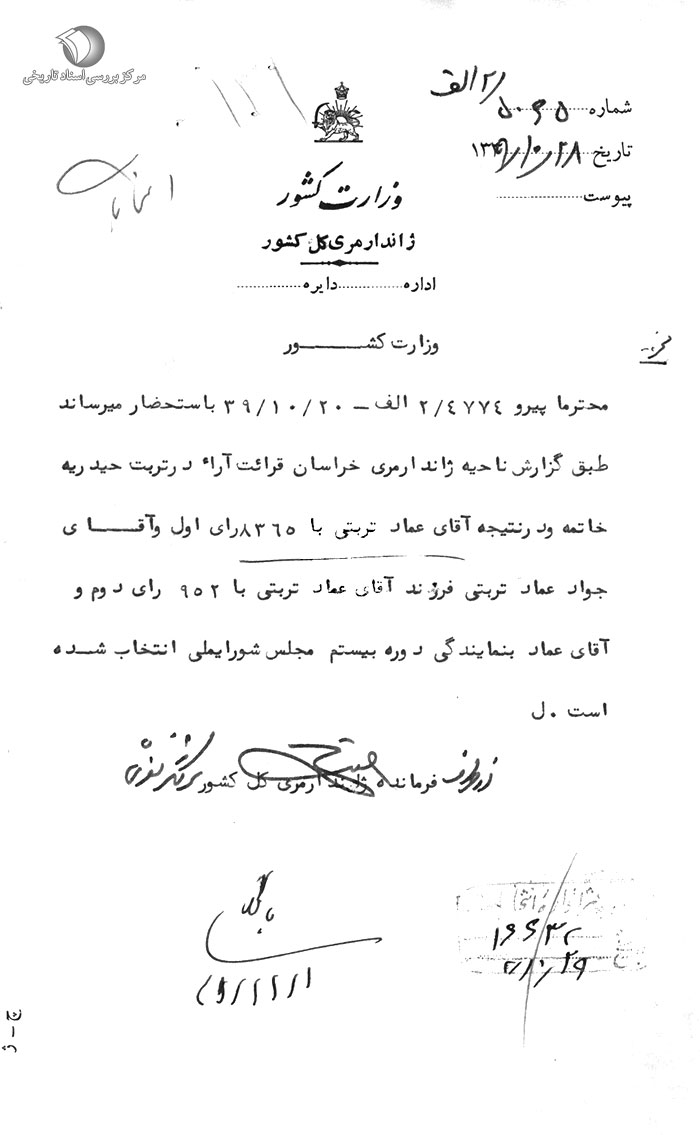 مرکز بررسی اسناد تاریخی
شماره ۵۰۶۵/۲ الف
تاریخ ۱۳۳۹/۱۰/۲۸
پیوست
وزارت کشور
ژاندارمری کل کشور
اداره دایره
وزارت کشـــور
محترما پیرو ۲/٤۷۷٤ الف - ۳۹/۱۰/۲۰ باستحضار میرساند
طبق گزارش ناحیه ژاندارمری خراسان قرائت آراء درتربت حیدریه
خاتمه ودرنتیجه آقای عماد تربتی با ۸۳٦۵رای اول وآقـــای
جواد عماد تربتی فرزند آقای عماد تربتی با ۹۵۲ رای دوم و
آقای عماد بنمایندگی دوره بیستم مجلس شورایملی انتخاب شـده
است ۰ل
فرمانده ژاندارمری کل کشور
بایگانی
۱۶۶۳۲
۱۰/۲۹
ج - ژ